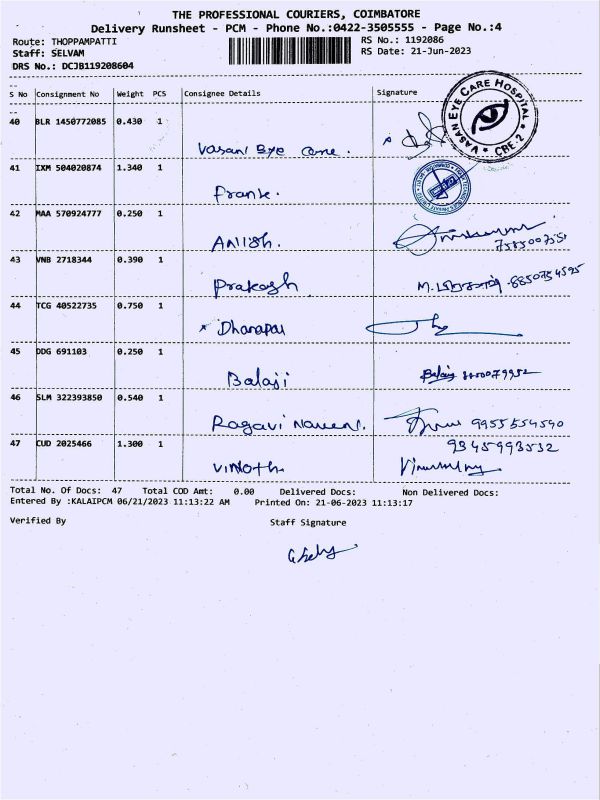 THE PROFESSIONAL COURIERS, COIMBATORE
Delivery Runsheet - PCM - Phone No.:0422-3505555 - Page No.:4
Route: THOPPAMPATTI RS No.: 1192086
Staff: SELVAM RS Date: 21-Jun-2023
DRS No.: DCJB119208604
S No Consignment No Weight PCS Consignee Details Signature
VASAN EYE CARE HOSPITAL
CBE-2
40 BLR 1450772085 0.430 1
Vasan Eye Care.
41 IXM 504020874 1.340 1
Frank.
42 MAA 570924777 0.250 1
Anish.
43 VNB 2718344 0.390 1
Prakash M. 8850754595
44 TCG 40522735 0.750 1
x Dhanapal
45 DDG 691103 0.250 1
Balaji Balaji
46 SLM 322393850 0.540 1
Ragavi Naveen. 9955554540
47 CUD 2025466 1.300 1 9345993532
Vinoth
Total No. Of Docs: 47 Total COD Amt: 0.00 Delivered Docs: Non Delivered Docs:
Entered By :KALAIPCM 06/21/2023 11:13:22 AM Printed On: 21-06-2023 11:13:17
Verified By Staff Signature